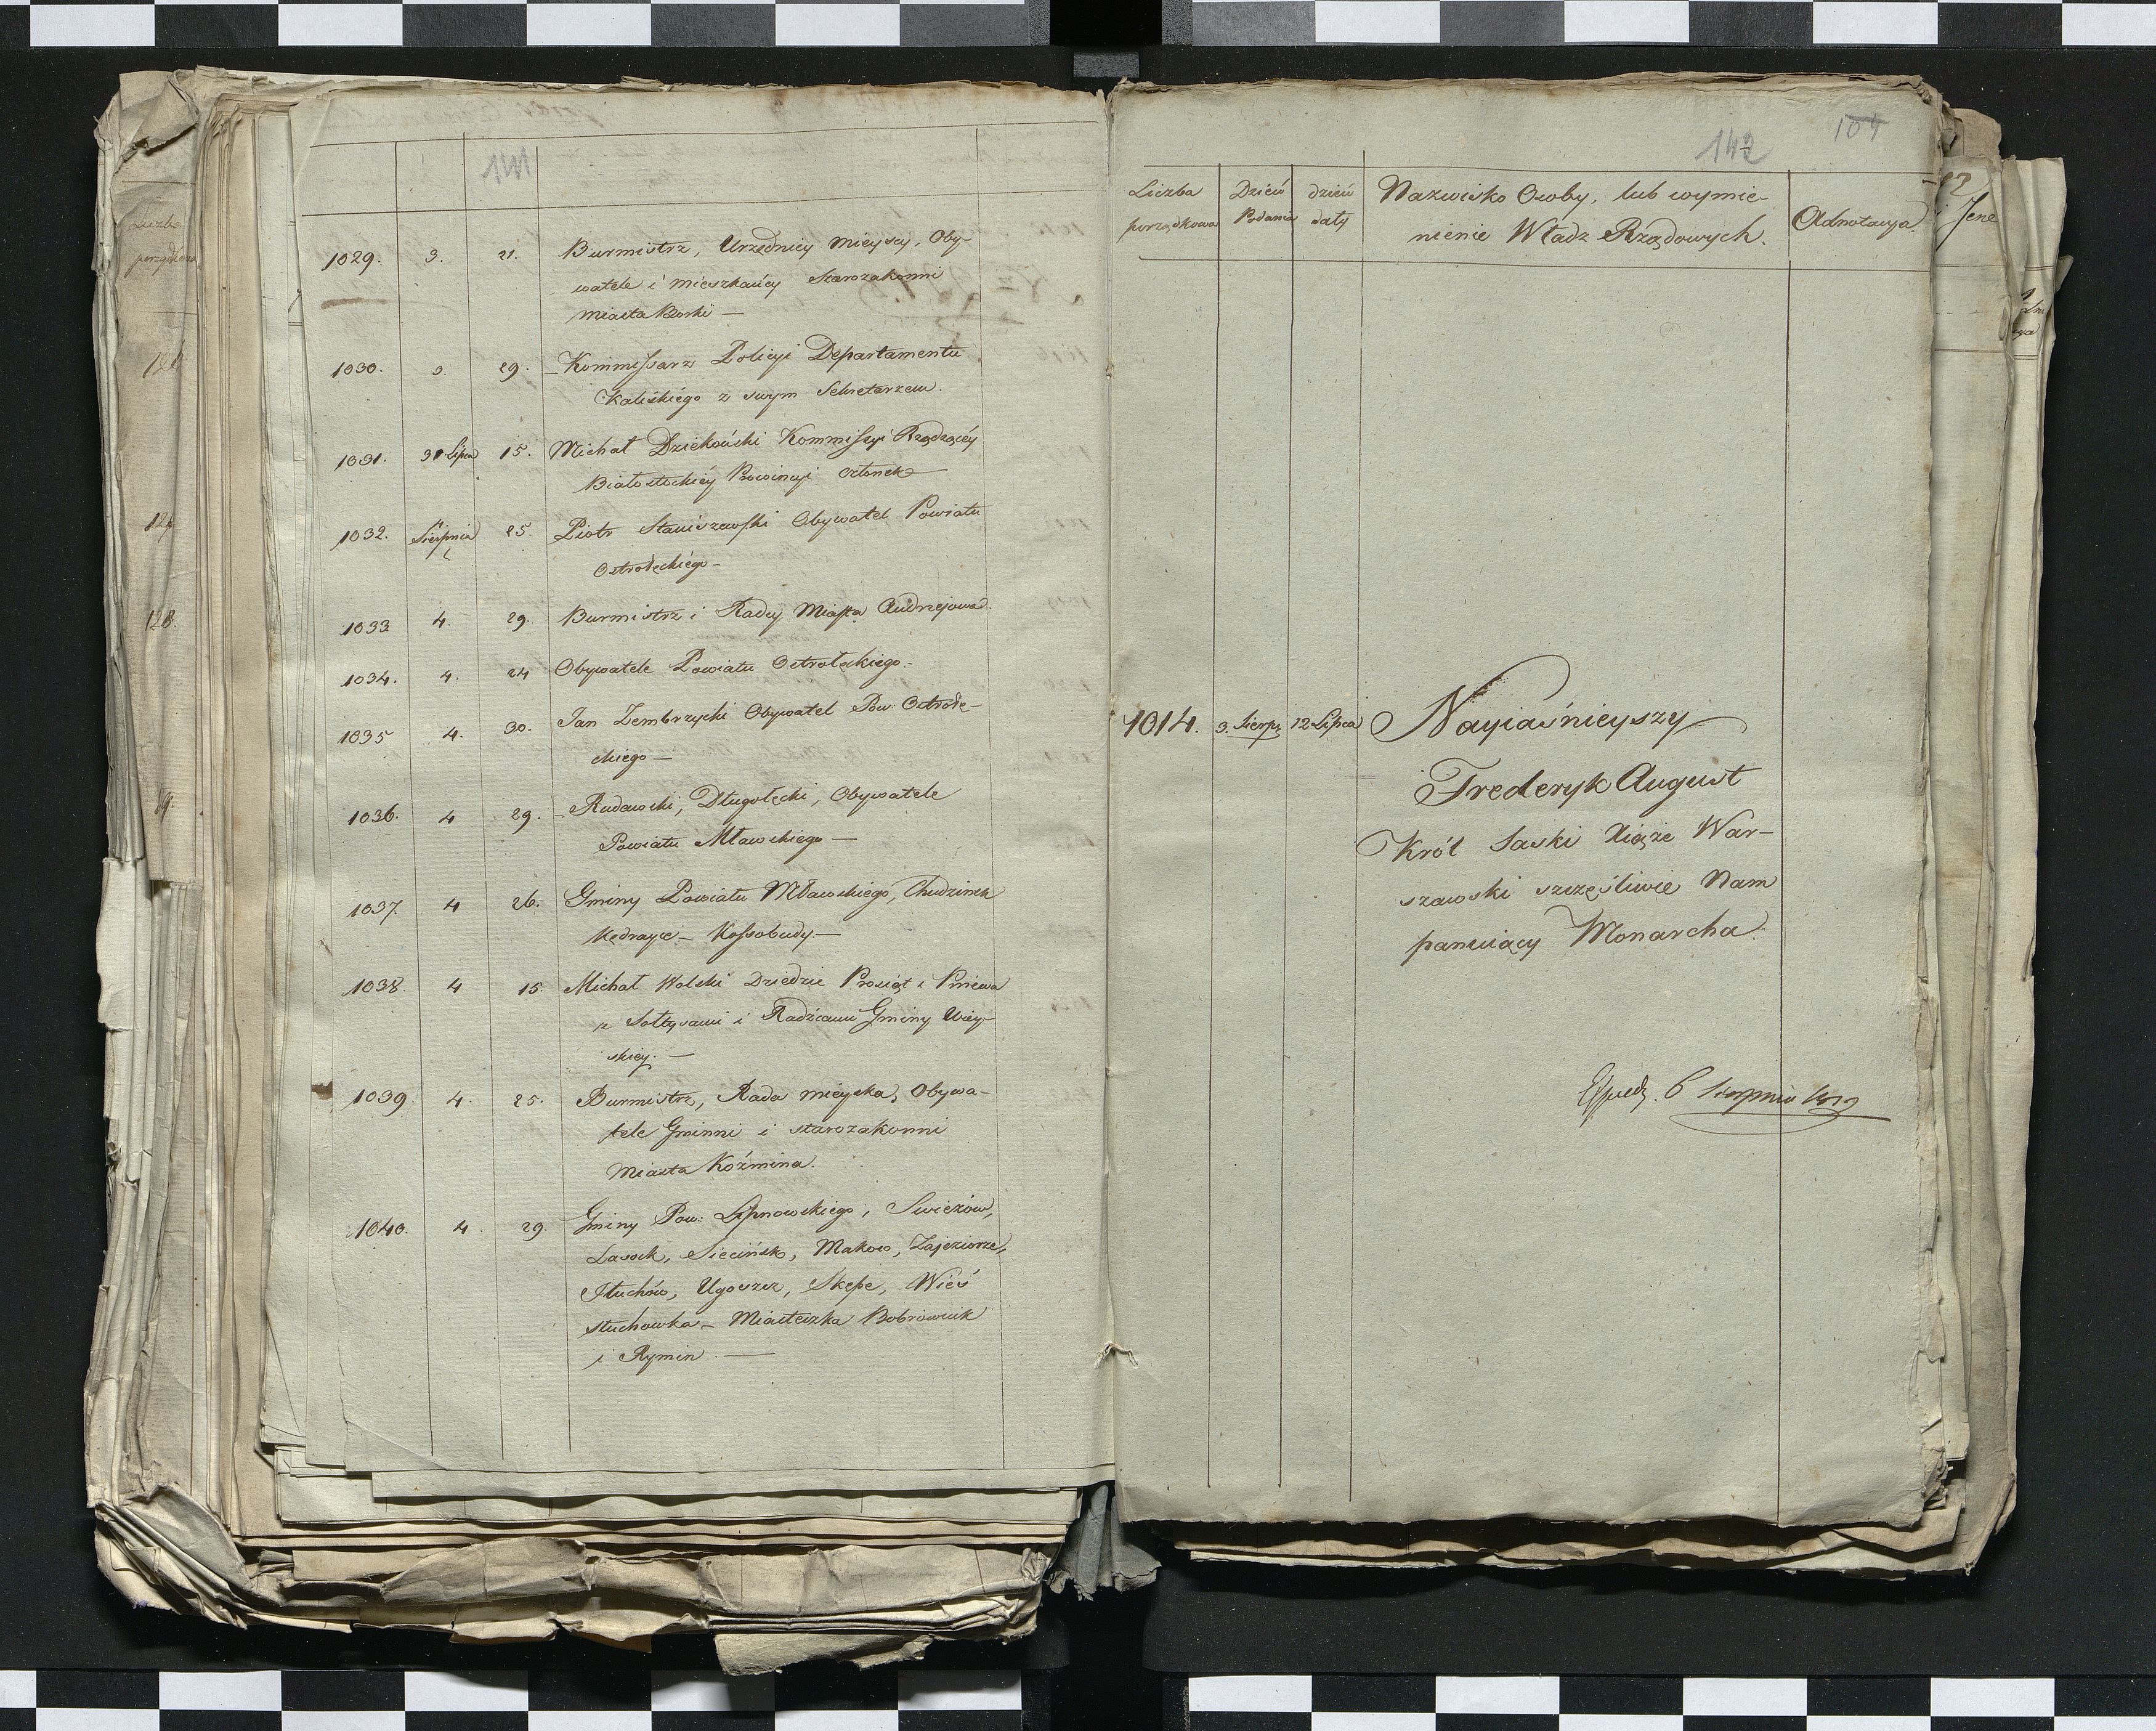 141
1029. 3. 21. Burmistrz, Urzędnicy Mieyscy, Oby-
watele i Mieszkańcy Starozakonni
Miasta
1030. 3. 29. Kommissarz Policyi Departamentu
Kaliskiego z swym Sekretarzem.
1031. 31 Lipca 15. Michał Dziekoński Kommissyi Rządzącéy
Białostockiéy Prowincyi Członek —
1032. Sierpnia 25. Piotr Staniszewski Obywatel Powiatu
Ostrołęckiégo —
1033 4. 29. Burmistrz i Radcy Miasta Andrzejowa.
1034. 4. 24 Obywatele Powiatu Ostrołęckiego. —
1035 4. 30. Jan Zembrzycki Obywatel Pow: Ostrołę-
ckiego —
1036. 4 29. Rudowski, Długołęcki, Obywatele
Powiatu Mławskiego —
1037. 4 26. Gminy Powiatu Mławskiego, Chudzinek
Kossobudy. —
1038. 4 15. Michał Wolski Dziedzic Prosiąt i Pniewa
z Sołtysami i Radźcami Gminy Wiey-
skiey. —
1039. 4. 25. Burmistrz, Rada mieyska, Obywa-
tele Gminni i starozakonni
Miasta Koźmina.
1040. 4. 29. Gminy Pow: Lipnowskiego,
Lasock, Siecińsk, Makow, Zajeziorze,
Ugoszcz, Skępe, Wieś
Stuchowka — Miasteczka Bobrowniki
i Rypin. —
142 104
Liczba
porządkowa
Dzień
Podania
dzień
daty
Nazwisko Osoby, lub wymie-
nienie Władz Rządowych.
Adnotacya.
1014. 3. Sierp: 12 Lipca Nayiaśnieyszy
Frederyk August
Król Saski Xiąże War-
szawski szczęśliwie Nam
panuiący Monarcha.
6 Sierpnia 1809